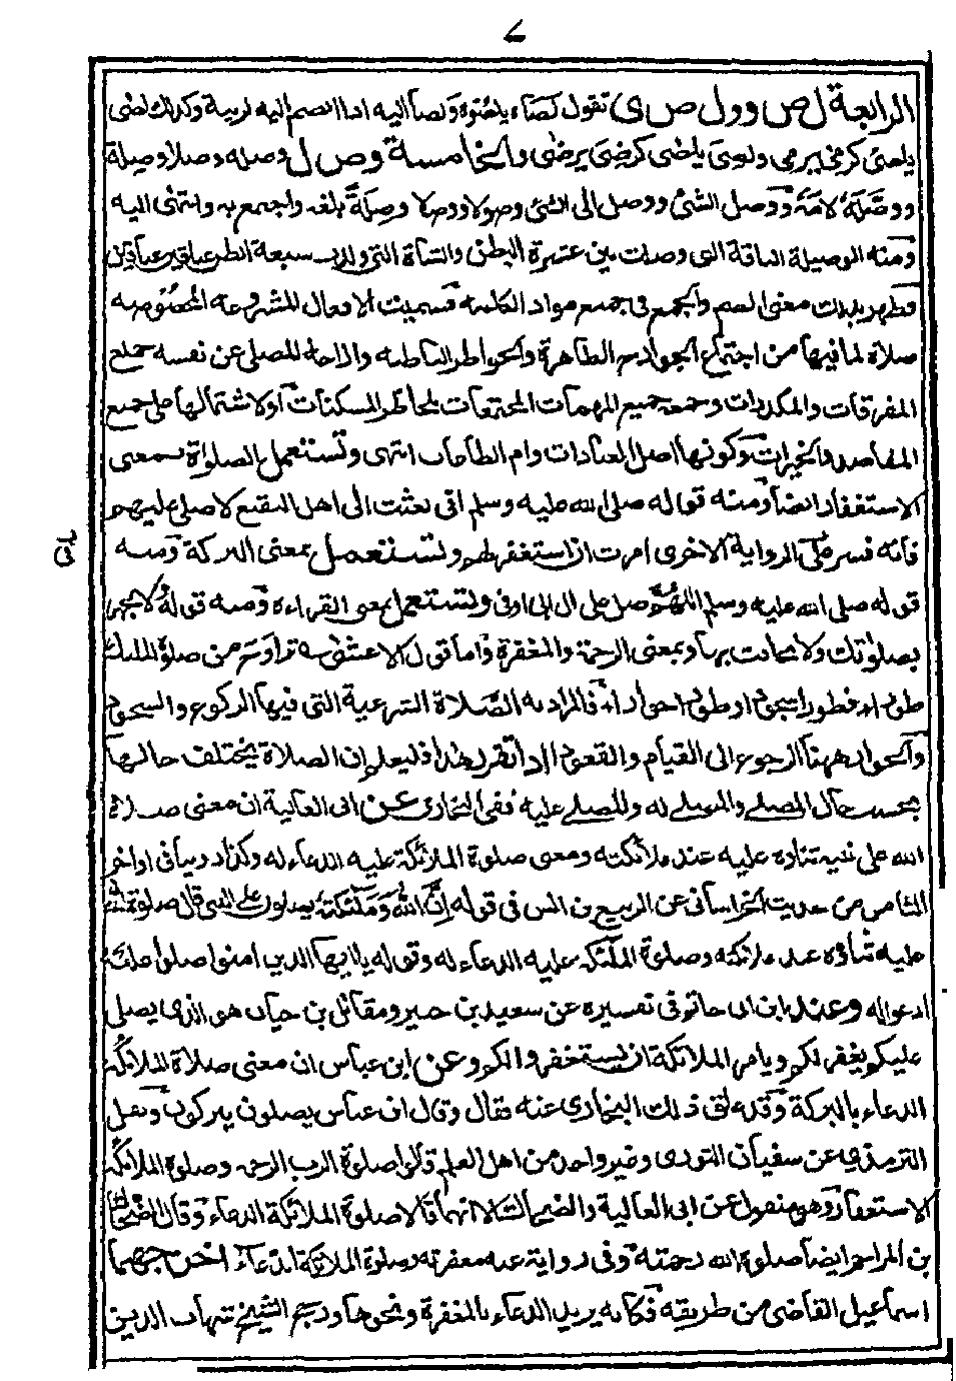 الرابعة ل ص و و ل ص ى تقول لصاه يلصوه ولصا اليه اذا انضم اليه لريبة وكذلك لصى
يلصى كرمى يرمى ولصى يلصى كرضى يرضى والخامسة و ص ل وصله وصلا وصلة
ووصله لامة ووصل الشئ ووصل الى الشئ وصولا ووصلا وصلة بلغه واجتمع به وانتهى اليه
ومنه الوصيلة الناقة التى وصلت بين عشرة ابطن والشاة التى ولدت سبعة ابطن عناقين عناقين
فظهر بذلك معنى الضم والجمع فى جميع مواد الكلمة فسميت الافعال المشروعة المخصوصة
صلاة لما فيها من اجتماع الجوارح الظاهرة والخواطر الباطنة وازاحة المصلى عن نفسه جميع
المفرقات والمكدرات وجمعه جميع المهمات المجتمعات للخاطر المسكنات او لاشتمالها على جميع
المقاصد والخيرات وكونها اصل العبادات وام الطاعات انتهى وتستعمل الصلواة بمعنى
الاستغفار ايضا ومنه قوله صلى الله عليه وسلم انى بعثت الى اهل البقيع لاصلى عليهم
فانه فسر فى الرواية الاخرى امرت ان استغفر لهم وتستعمل بمعنى البركة ومنه
قوله صلى الله عليه وسلم اللهم صل على ال ابى اوفى وتستعمل بمعنى القراءة ومنه قوله لا تجهر
بصلوتك ولا تخافت بها وبمعنى الرحمة والمغفرة واما قول الاعشى تراوح من صلوة المليك
طورا فطورا سجودا وطورا جوارا فالمراد به الصلاة الشرعية التى فيها الركوع والسجود
والجوار ههنا الرجوع الى القيام والقعود اذا تقرر هذا فليعلم ان الصلاة يختلف حالها
بحسب حال المصلى والمصلى له والمصلى عليه ففى البخارى عن ابى العالية ان معنى صلاة
الله على نبيه ثناؤه عليه عند ملائكته ومعنى صلوة الملائكة عليه الدعاء له وكذا روينا فى اواخر
الثامن من حديث الخراسانى عن الربيع بن انس فى قوله ان الله وملئكته يصلون على النبى قال صلوة الله
عليه ثناؤه عند ملائكته وصلوة الملئكة عليه الدعاء له وقوله يا ايها الذين امنوا صلوا عليه
ادعوا له وعند ابن ابى حاتم فى تفسيره عن سعيد بن جبير ومقاتل بن حيان هو الذى يصلى
عليكم يغفر لكم ويامر الملائكة ان يستغفروا لكم وعن ابن عباس ان معنى صلاة الملائكة
الدعاء بالبركة وقد علق ذلك البخارى عنه فقال وقال ابن عباس يصلون يبركون ونقل
الترمذى عن سفيان الثورى وغير واحد من اهل العلم قالوا صلوة الرب الرحمة وصلوة الملائكة
الاستغفار وهو منقول عن ابى العالية والضحاك الا انهما قالا صلوة الملائكة الدعاء وقال الضحاك
بن المزاحم ايضا صلوة الله رحمته وفى رواية عنه مغفرته وصلوة الملائكة الدعاء اخرجهما
اسماعيل القاضى من طريقه فكانه يريد الدعاء بالمغفرة ونحوها ورجح الشيخ شهاب الدين